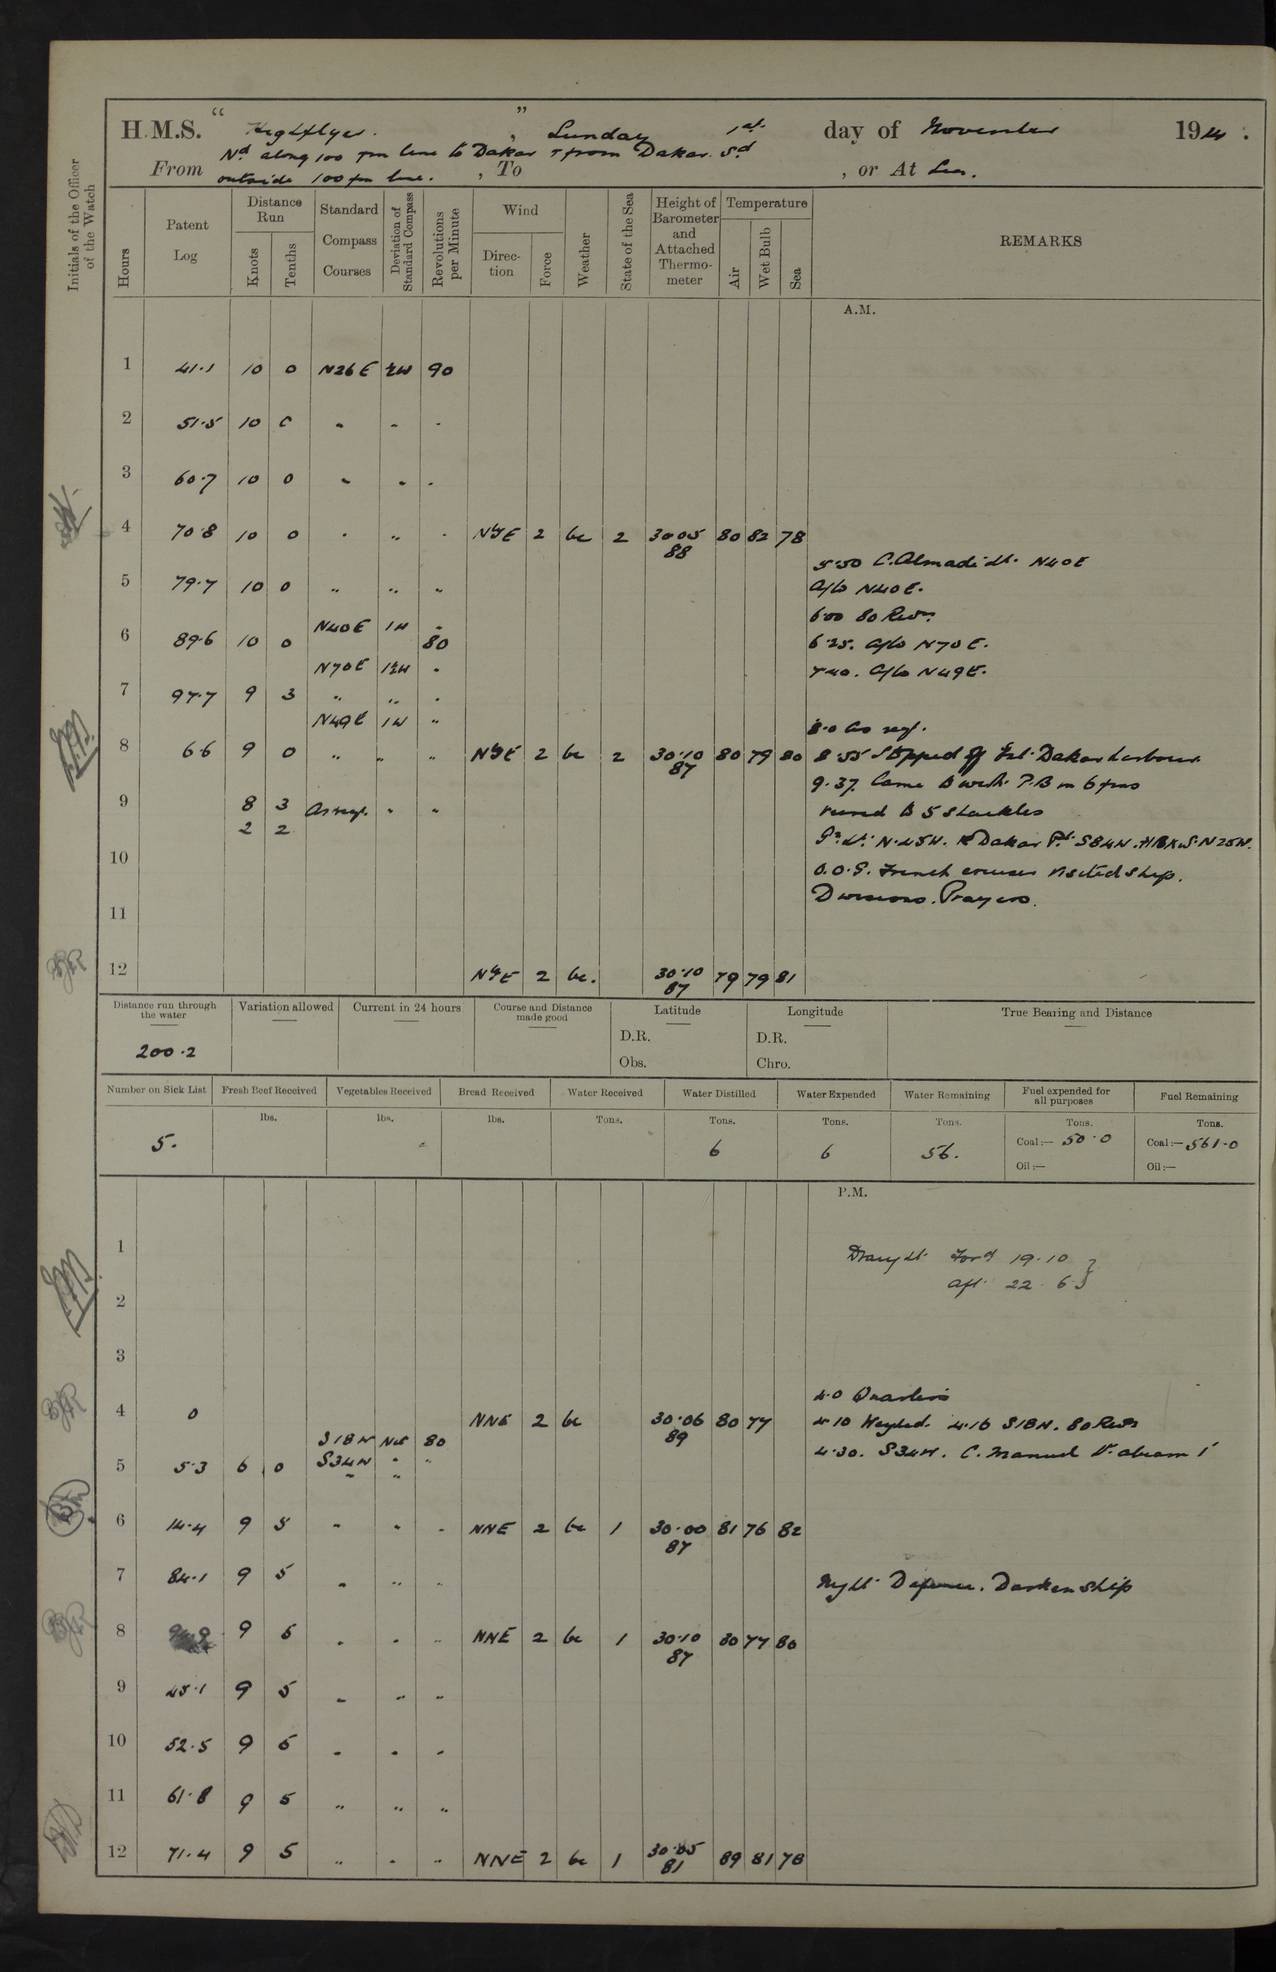 H.M.S. " Highflyer. ", Sunday 1st. day of November 1914.
From Nd along 100 fm line to Dakar & from Dakar. Sd
outside 100 fm line. , To , or At Sea.
Initials of the Officer of the Watch
Hours
Patent Log
Distance Run
Knots
Tenths
Standard Compass Courses
Deviation of Standard Compass
Revolutions per Minute
Wind
Direction
Force
Weather
State of the Sea
Height of Barometer and Attached Thermometer
Temperature
Air
Wet Bulb
Sea
REMARKS
A.M.
1 41.1 10 0 N26E ½W 90
2 51.5 10 0 " " "
3 60.7 10 0 " " "
4 70.8 10 0 " " " NbyE 2 bc 2 30.05 80 82 78
88
5.50 C. Almadi Lt. N40E
5 79.7 10 0 " " " A/Co N40E.
6.00 80 Revs.
N40E 1W "
6 89.6 10 0 80 6.25. A/Co N70E.
N70E 1½W " 7.40. A/Co N49E.
7 97.7 9 3 " " "
N49E 1W " 8.0 as req.
8 6.6 9 0 " " " NbyE 2 bc 2 30.10 80 79 80 8.55 Stopped off Ent. Dakar harbour
87
9.37. Came to with P.B in 6 fms
9 8 3 As req. " " veered to 5 shackles
2 2
10
O.O.G. French cruiser visited ship.
Divisions. Prayers.
11
12 NbyE 2 bc. 30.10 79 79 81
87
Distance run through the water
200.2
Variation allowed
Current in 24 hours
Course and Distance made good
Latitude
D.R.
Obs.
Longitude
D.R.
Chro.
True Bearing and Distance
Number on Sick List
5.
Fresh Beef Received
lbs.
Vegetables Received
lbs.
Bread Received
lbs.
Water Received
Tons.
Water Distilled
Tons.
6
Water Expended
Tons.
6
Water Remaining
Tons.
56.
Fuel expended for all purposes
Tons.
Coal:— 50.0
Oil:—
Fuel Remaining
Tons.
Coal:— 561.0
Oil:—
P.M.
1 Draught Ford 19.10 }
Aft. 22.6 }
2
3
4.0 Quarters
4 0 NNE 2 bc 30.06 80 77 4.10 Weighed. 4.16 S18W. 80 Revs
89
S18W Nil 80
S34W " " 4.30. S34W. C. Manuel Lt. abeam 1'
5 5.3 6 0 " "
6 14.4 9 5 " " " NNE 2 bc 1 30.00 81 76 82
87
7 84.1 9 5 " " " Night Defence. Darken Ship
8 9 5 " " " NNE 2 bc 1 30.10 80 77 80
87
9 43.1 9 5 " " "
10 52.5 9 5 " " "
11 61.8 9 5 " " "
12 71.4 9 5 " " " NNE 2 bc 1 30.05 89 81 78
81